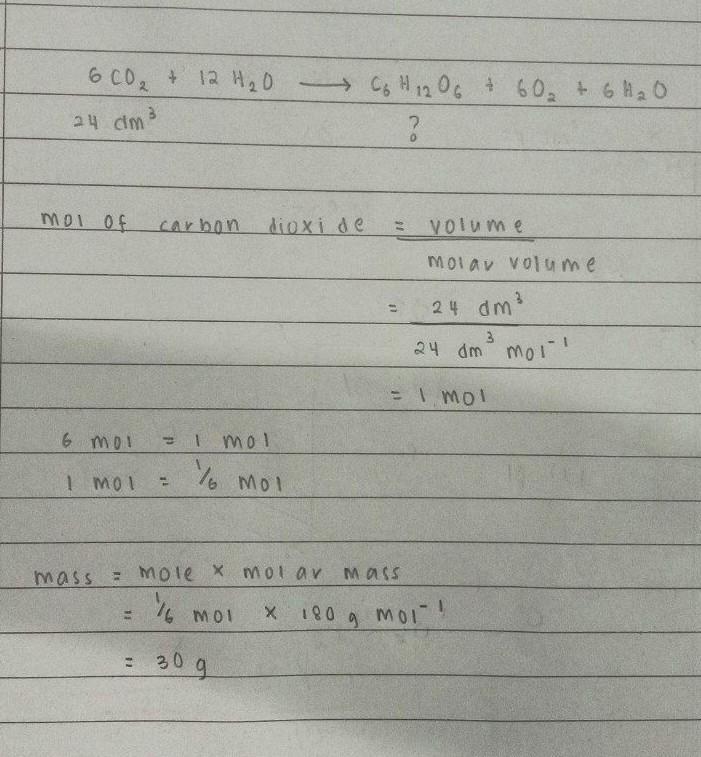 6 CO₂ + 12 H₂O ⟶ C₆H₁₂O₆ + 6O₂ + 6H₂O
24 dm³ ?
mol of carbon dioxide = volume
molar volume
= 24 dm³
24 dm³ mol⁻¹
= 1 mol
6 mol = 1 mol
1 mol = 1/6 mol
mass = mole × molar mass
= 1/6 mol × 180 g mol⁻¹
= 30 g